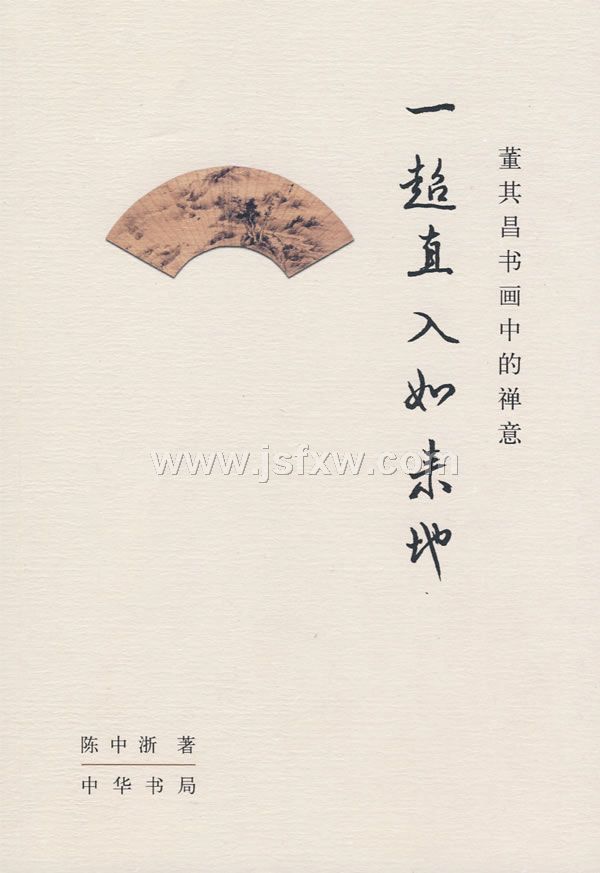 董其昌书画中的禅意
一超直入如来地
www.jsfxw.com
陈中浙 著
中华书局